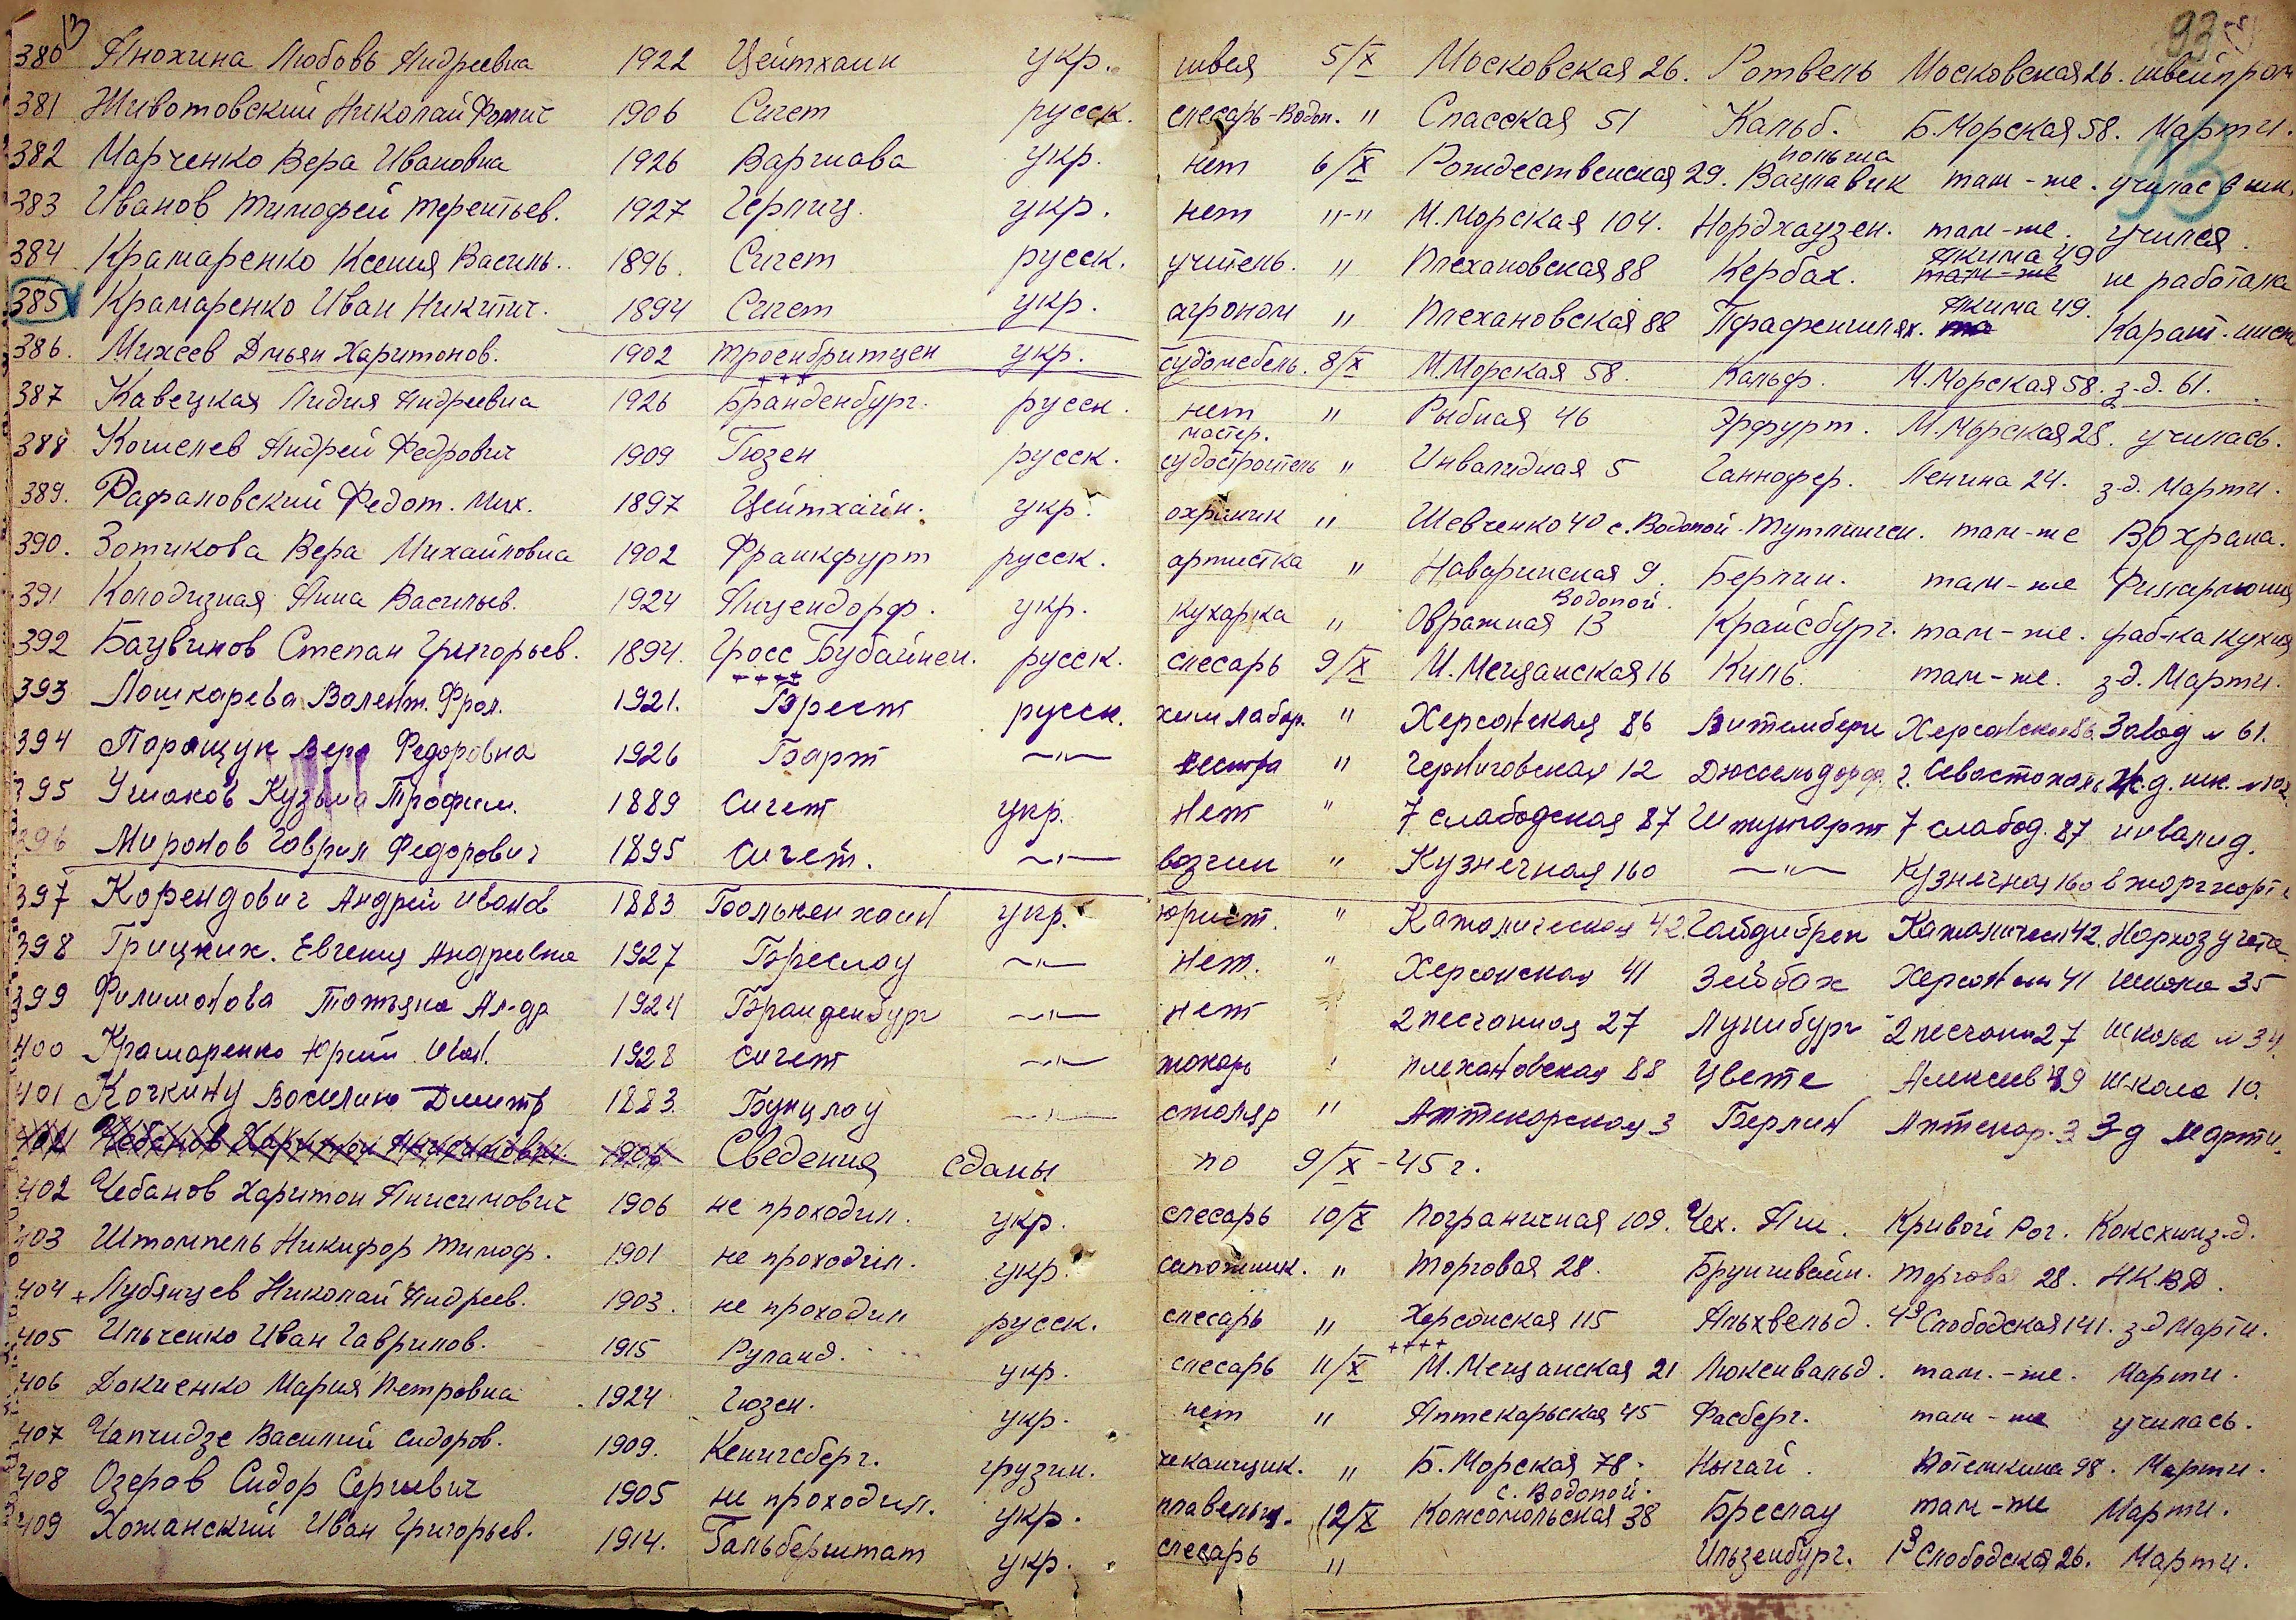 93
380 Анохина Любовь Андреевна 1922 Цейтхаин укр. швея 5/X Московская 26. Ротвель Московская 26. швейпром
381 Животовский Николай Фомич 1906 Сигет русск. слесарь-Водоп. " Спасская 51 Кальб. Б. Морская 58. Марти.
382 Марченко Вера Ивановна 1926 Варшава укр. нет 6/X Рождественская 29. польша Вацлавик там-же. училас в шк.
383 Иванов Тимофей Терентьев. 1927 Герлиц. укр. нет "-" М. Морская 104. Нордхаузен. там-же. учился.
384 Крамаренко Ксения Василь. 1896. Сигет русск. учитель. " Плехановская 88 Кербах. Акима 49 не работала
385 Крамаренко Иван Никитич. 1894 Сигет укр. агроном " Плехановская 88 Акима 49. Карант. инсп
386. Михеев Дмьян Харитонов. 1902 Троенбритцен укр. судомебель. 8/X М. Морская 58. Кальф. М. Морская 58. з-д. 61.
387 Кавецкая Лидия Андреевна 1926 Бранденбург. русск. нет " Рыбная 46 Эрфурт. М. Морская 28. училась.
388 Кошелев Андрей Федрович 1909 Гюзен русск. мастер. судостроитель " Инвалидная 5 Ганнофер. Ленина 24. з-д. Марти.
389. Рафаловский Федот. Мих. 1897 Цейтхайн. укр. охранник " Шевченко 40 с. Водопой. Тутлинген. там-же ВОхрана.
390. Зотикова Вера Михайловна 1902 Франкфурт русск. артистка " Наваринская 9. Берлин. там-же Филармония
391 Колодизная Анна Васильев. 1924 Лицендорф. укр. кухарка " Водопой. Овражная 13 Крайсбург. там-же. фаб-ка кухня
392 Бацвинов Степан Григорьев. 1894. Гросс Бубайнен. русск. слесарь 9/X М. Мещанская 16 Киль. там-же. з-д. Марти.
393 Лошкарева Валент. Фрол. 1921. Брест русск. хим лабор. " Херсонская 86 Витемберг Херсонская 86. Завод № 61.
394 Паращук Вера Федоровна 1926 Барт —"— сестра " Черниговская 12 Дюссельдорф. г. Севастополь Ж.д. шк. № 102
395 Ушаков Кузьма Трофим. 1889 Сигет укр. Нет " 7 слабодская 87 Штутгарт 7 слабод. 87 инвалид.
396 Миронов Гаврил Федорович 1895 Сигет. —"— возчик " Кузнечная 160 —"— Кузнечная 160 в торгпорте
397 Корендович Андрей Иванов 1883 Болькенхаин укр. юрист. " Католическая 42. Католическ 42. Нархоз учета
398 Грицких. Евгения Андреевна 1927 Бреслау —"— Нет. " Херсонская 41 Зейбах Херсонск 41 школа 35
399 Филимонова Татьяна Ал-др 1924 Бранденбург —"— нет " 2 песчаная 27 Лунибург 2 песчан 27 школа № 34.
400 Крамаренко Юрий Иван. 1928 Сигет —"— токарь " Плехановская 88 Цвете Алексеев 49 школа 10.
401 Кочкину Василию Дмитр 1883. Бунцлау —"— столяр " Аптекарская 3 Берлин Аптекар. 3 З-д Марти.
Чебанов Харитон Анисимович. 1906 Сведения сданы по 9/X-45 г.
402 Чебанов Харитон Анисимович 1906 не проходил. укр. слесарь 10/X Пограничная 109. Чех. Аш. Кривой Рог. Коксхимз-д.
403 Штомпель Никифор Тимоф. 1901 не проходил. укр. сапожник. " Торговая 28. Бруншвайн. Торговая 28. НКВД.
404 + Лубянцев Николай Андреев. 1903. не проходил русск. слесарь " Херсонская 115 Альхвельд. 4я Слободская 141. з-д Марти.
405 Ильченко Иван Гаврилов. 1915 Руланд. укр. слесарь 11/X М. Мещанская 21 Люкенвальд. там.-же. Марти.
406 Докиенко Мария Петровна 1924 Гюзен. укр. нет " Аптекарьская 45 Фасберг. там-же училась.
407 Чапчидзе Василий Сидоров. 1909. Кенигсберг. грузин. чеканщик. " Б. Морская 78. Нытай. Потемкина 98. Марти.
408 Озеров Сидор Сергеевич 1905 не проходил. укр. плавельщ. 12/X с. Водопой. Комсомольская 38 Бреслау там-же Марти.
409 Хожанский Иван Григорьев. 1914. Гальберштат укр. слесарь " Ильзенбург. 1я Слободская 26. Марти.